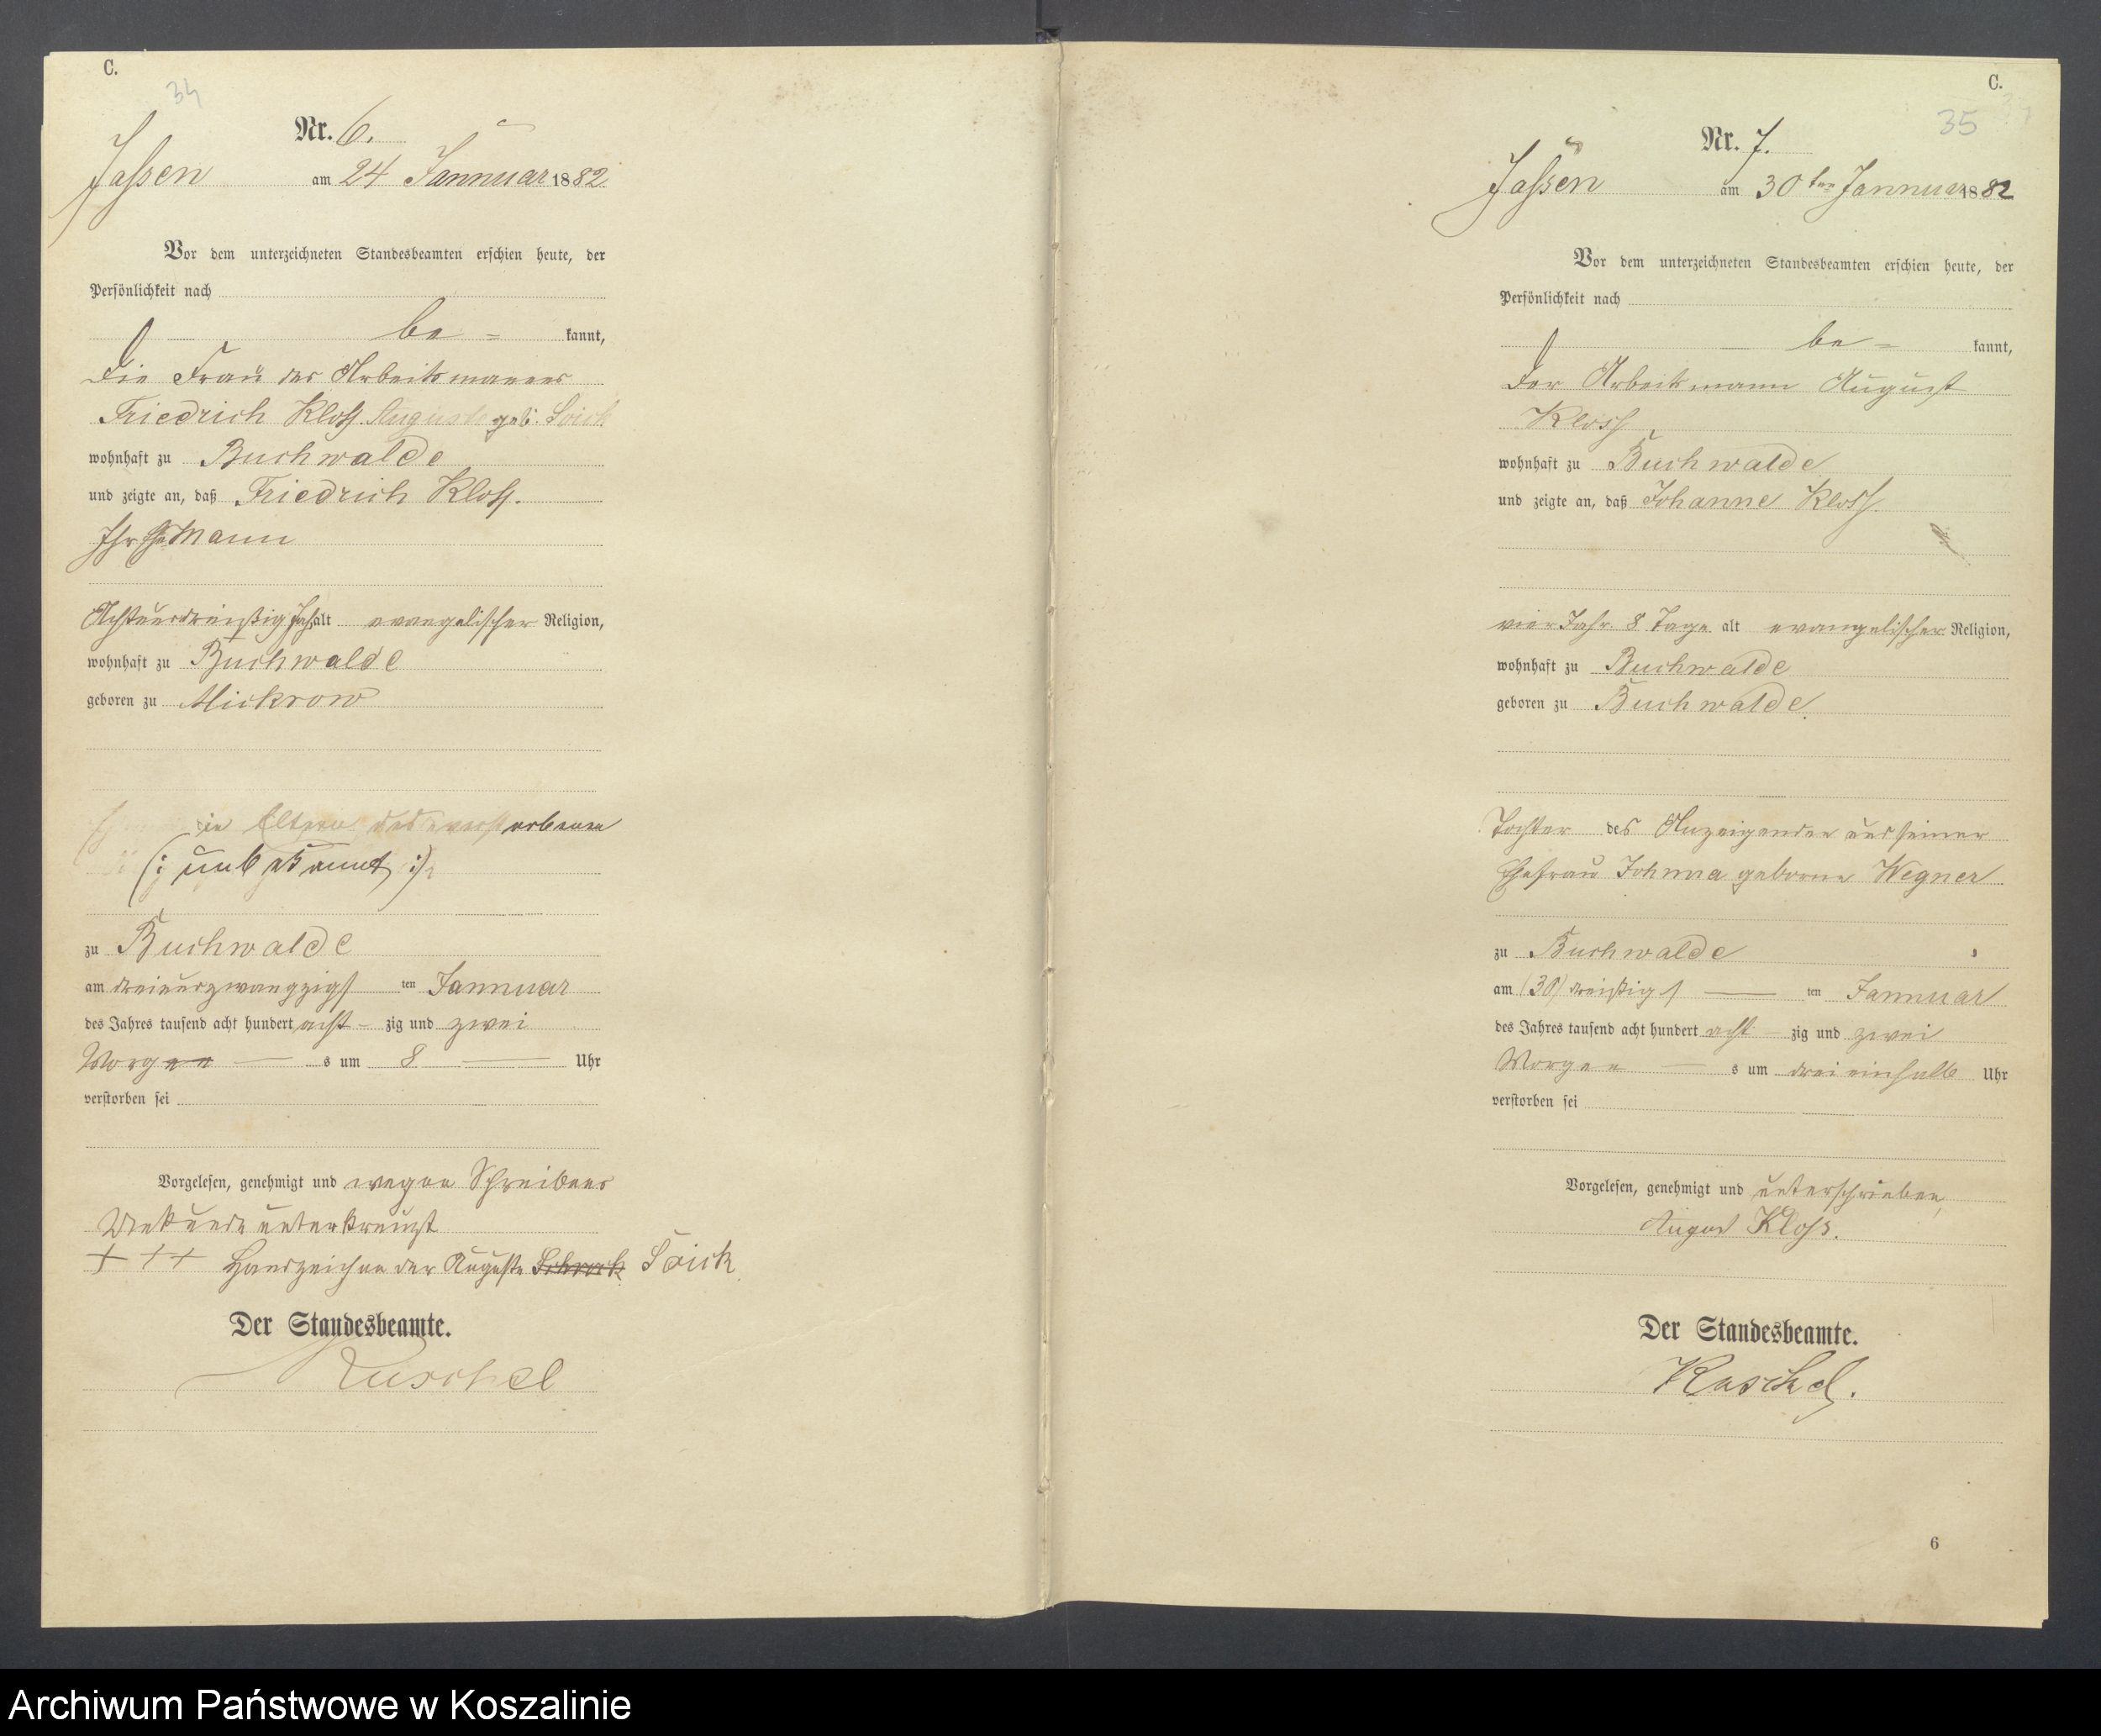 C.
34
Nr. 6.
Jassen am 24 Jannuar 1882.
Vor dem unterzeichneten Standesbeamten erschien heute, der
Persönlichkeit nach
be = kannt,
die Frau des Arbeitsmannes
Friedrich Kloß. Auguste geb. Soick
wohnhaft zu Buchwalde
und zeigte an, daß Friedrich Kloß.
Ihr Ehemann
Achtunddreißig Jahr alt evangelischer Religion,
wohnhaft zu Buchwalde
geboren zu Mickrow
die Eltern des verstorbenen
(: unbekannt :)
zu Buchwalde
am dreiundzwangzigst ten Jannuar
des Jahres tausend acht hundert acht – zig und zwei
Morgen — s um 8 — Uhr
verstorben sei
Vorgelesen, genehmigt und wegen Schreibens
Unkunde unterkreuzt
+ + + Handzeichen der Auguste Schrock Soick
Der Standesbeamte.
Kuschel
C.
35
Nr. 7.
Jassen am 30ten Jannuar 1882
Vor dem unterzeichneten Standesbeamten erschien heute, der
Persönlichkeit nach
be = kannt,
der Arbeitsmann August
Kloss
wohnhaft zu Buchwalde
und zeigte an, daß Johanne Kloss.
vier Jahr 8 Tage alt evangelischer Religion,
wohnhaft zu Buchwalde
geboren zu Buchwalde.
Tochter des Anzeigenden und seiner
Ehefrau Johnna geborne Wegner
zu Buchwalde
am (30) dreißigst — ten Jannuar
des Jahres tausend acht hundert acht – zig und zwei
Morgen — s um dreieinhalb Uhr
verstorben sei
Vorgelesen, genehmigt und unterschrieben,
August Kloss.
Der Standesbeamte.
Kuschel.
6
Archiwum Państwowe w Koszalinie